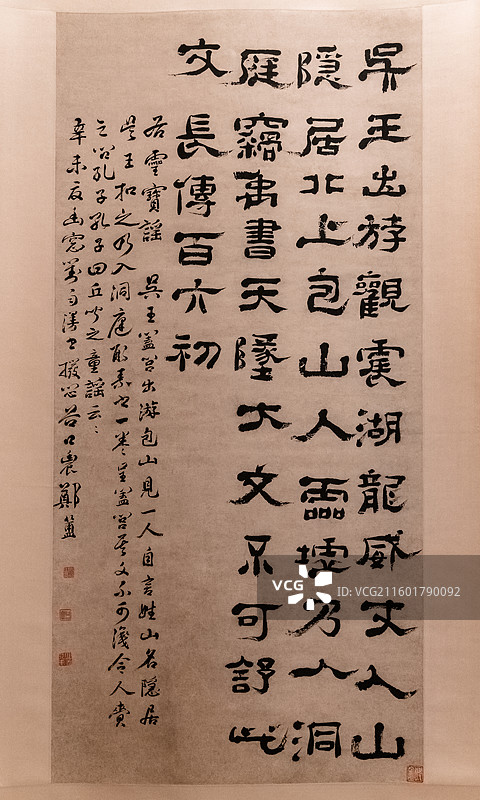 吳王出斿觀震湖龍威丈人山
隱居北上包山人靈墟乃入洞
庭竊禹書天墬大文不可舒此
文長傳百六初
右靈寶謠 吳王盖閭出游包山見一人自言姓山名隱居
吴王扣之乃入洞庭取素書一卷呈盖閭其文不可識令人賫
之問孔子孔子曰丘聞之童謠云云
辛未夏幽窓對雨漫書撥悶谷口農鄭簠
VCG
ID: VCG211601790092